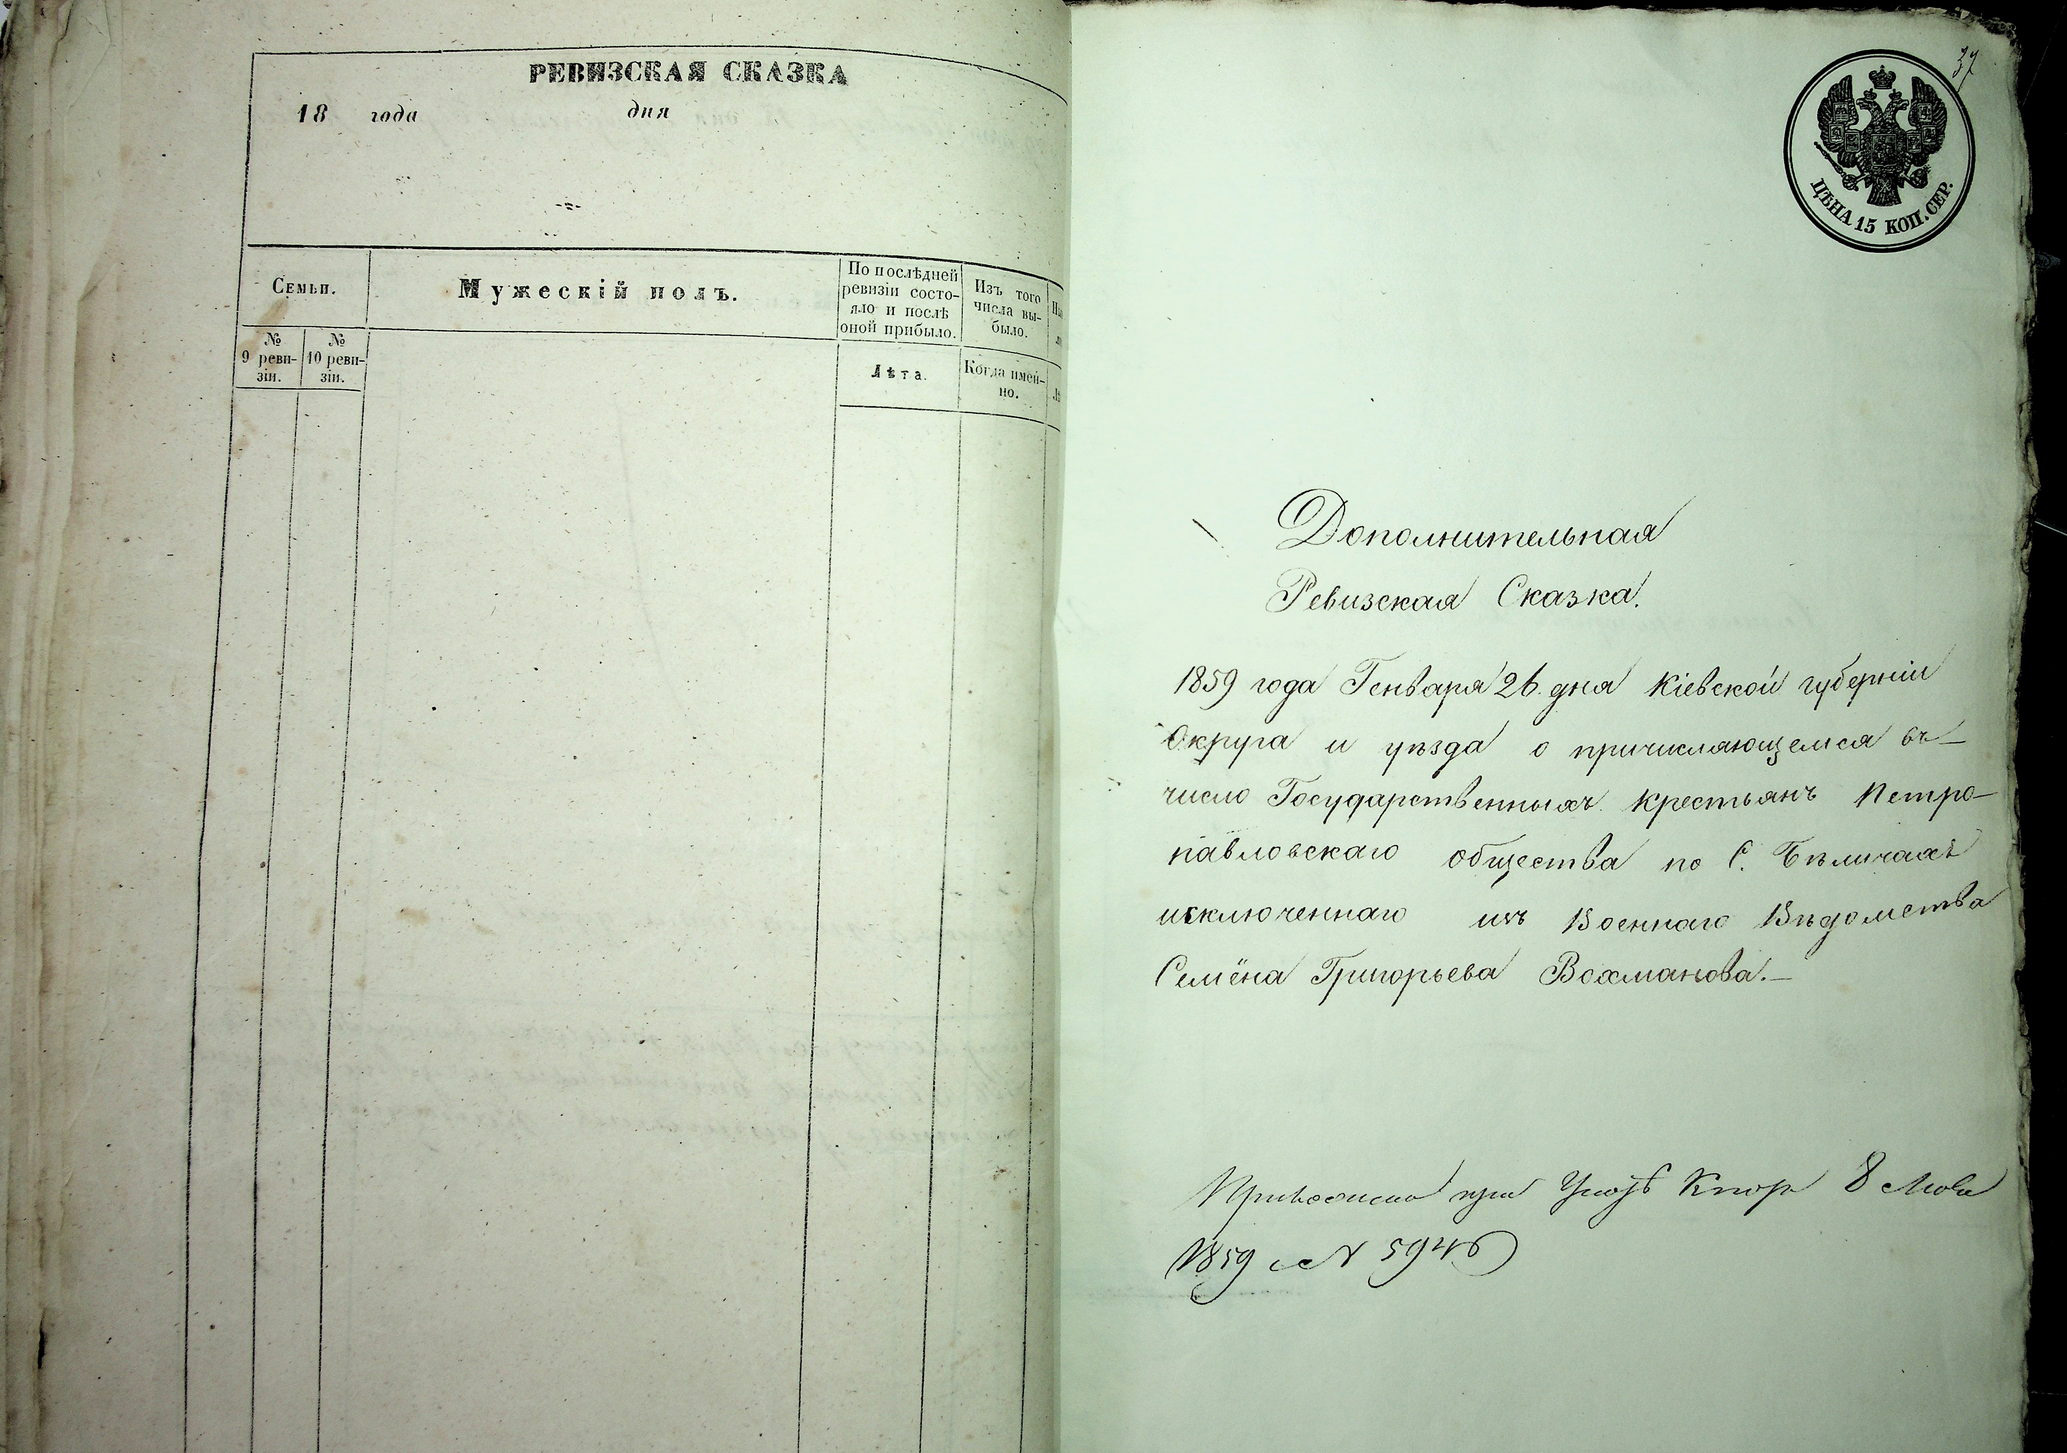 РЕВИЗСКАЯ СКАЗКА
18 года дня
Семьи.
Мужескій полъ.
По послѣдней
ревизіи состо-
яло и послѣ
оной прибыло.
Изъ того
числа вы-
было.
№
9 реви-
зіи.
№
10 реви-
зіи.
Лѣта.
Когда имен-
но.
37
ЦѢНА 15 КОП. СЕР.
Дополнительная
Ревизская Сказка.
1859 года Генваря 26 дня Кіевской губерніи
Округа и уѣзда о причисляющемся въ
число Государственныхъ крестьянъ Петро-
павловскаго общества по С. Бѣличахъ
исключеннаго изъ Военнаго Вѣдомства
Семёна Григорьева Вохманова.—
при 8
1859 № 5946